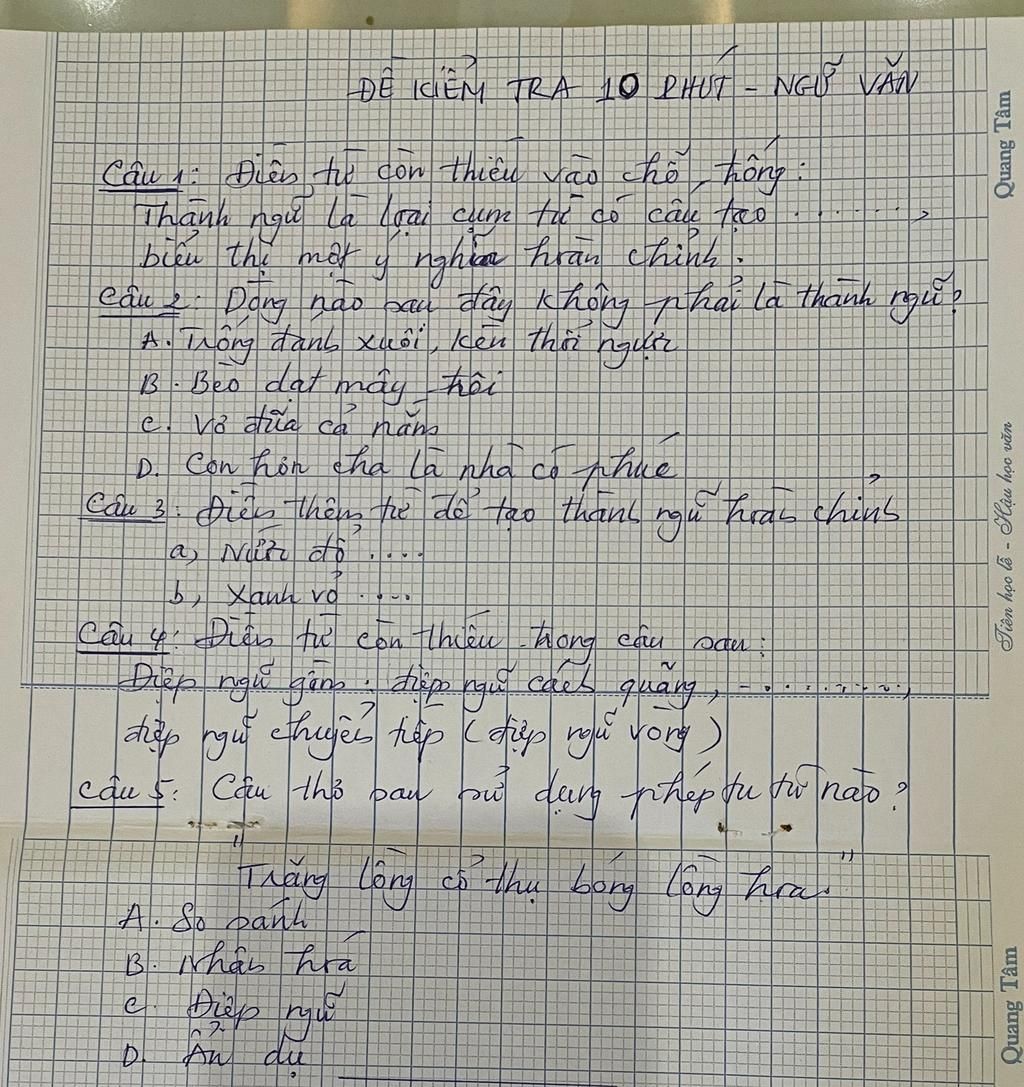 ĐỀ KIỂM TRA 10 PHÚT - NGỮ VĂN
Câu 1: Điền từ còn thiếu vào chỗ trống:
Thành ngữ là loại cụm từ có cấu tạo ........,
biểu thị một ý nghĩa hoàn chỉnh.
Câu 2: Dòng nào sau đây không phải là thành ngữ?
A. Trống đánh xuôi, kèn thổi ngược
B. Bèo dạt mây trôi
C. Vơ đũa cả nắm
D. Con hơn cha là nhà có phúc
Câu 3: Điền thêm từ để tạo thành ngữ hoàn chỉnh
a, Nước đổ ....
b, Xanh vỏ ....
Câu 4: Điền từ còn thiếu trong câu sau:
Điệp ngữ gồm: điệp ngữ cách quãng, ..........,
điệp ngữ chuyển tiếp (điệp ngữ vòng)
Câu 5: Câu thơ sau sử dụng phép tu từ nào?
"Trăng lồng cổ thụ bóng lồng hoa"
A. So sánh
B. Nhân hoá
C. Điệp ngữ
D. Ẩn dụ
Quang Tâm
Tiên học lễ - Hậu học văn
Quang Tâm